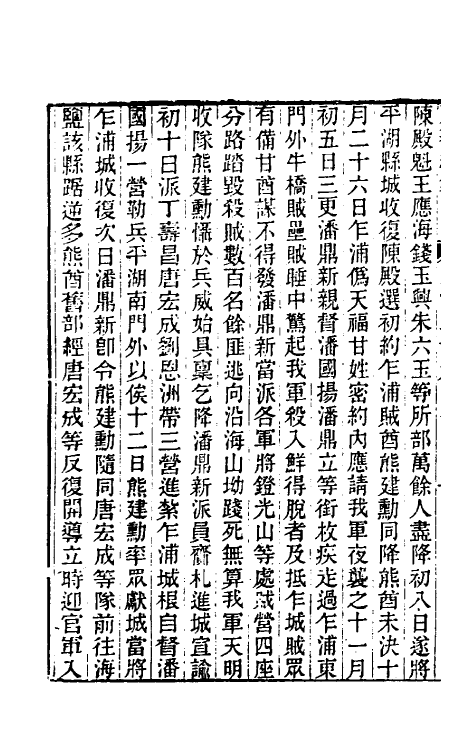 陳殿魁王應海錢玉興朱六玉等所部萬餘人盡降初八日遂將
平湖縣城收復陳殿選初約乍浦賊酋熊建勳同降熊酋未決十
月二十六日乍浦僞天福甘姓密約內應請我軍夜襲之十一月
初五日三更潘鼎新親督潘國揚潘鼎立等銜枚疾走過乍浦東
門外牛橋賊壘賊睡中驚起我軍殺入鮮得脫者及抵乍城賊眾
有備甘酋謀不得發潘鼎新當派各軍將鐙光山等處賊營四座
分路踏毀殺賊數百名餘匪逃向沿海山坳踐死無算我軍天明
收隊熊建勳懾於兵威始具稟乞降潘鼎新派員齎札進城宣諭
初十日派丁壽昌唐宏成劉恩洲帶三營進紮乍浦城根自督潘
國揚一營勒兵平湖南門外以俟十二日熊建勳率眾獻城當將
乍浦城收復次日潘鼎新卽令熊建勳隨同唐宏成等隊前往海
鹽該縣踞逆多熊酋舊部經唐宏成等反復開導立時迎官軍入